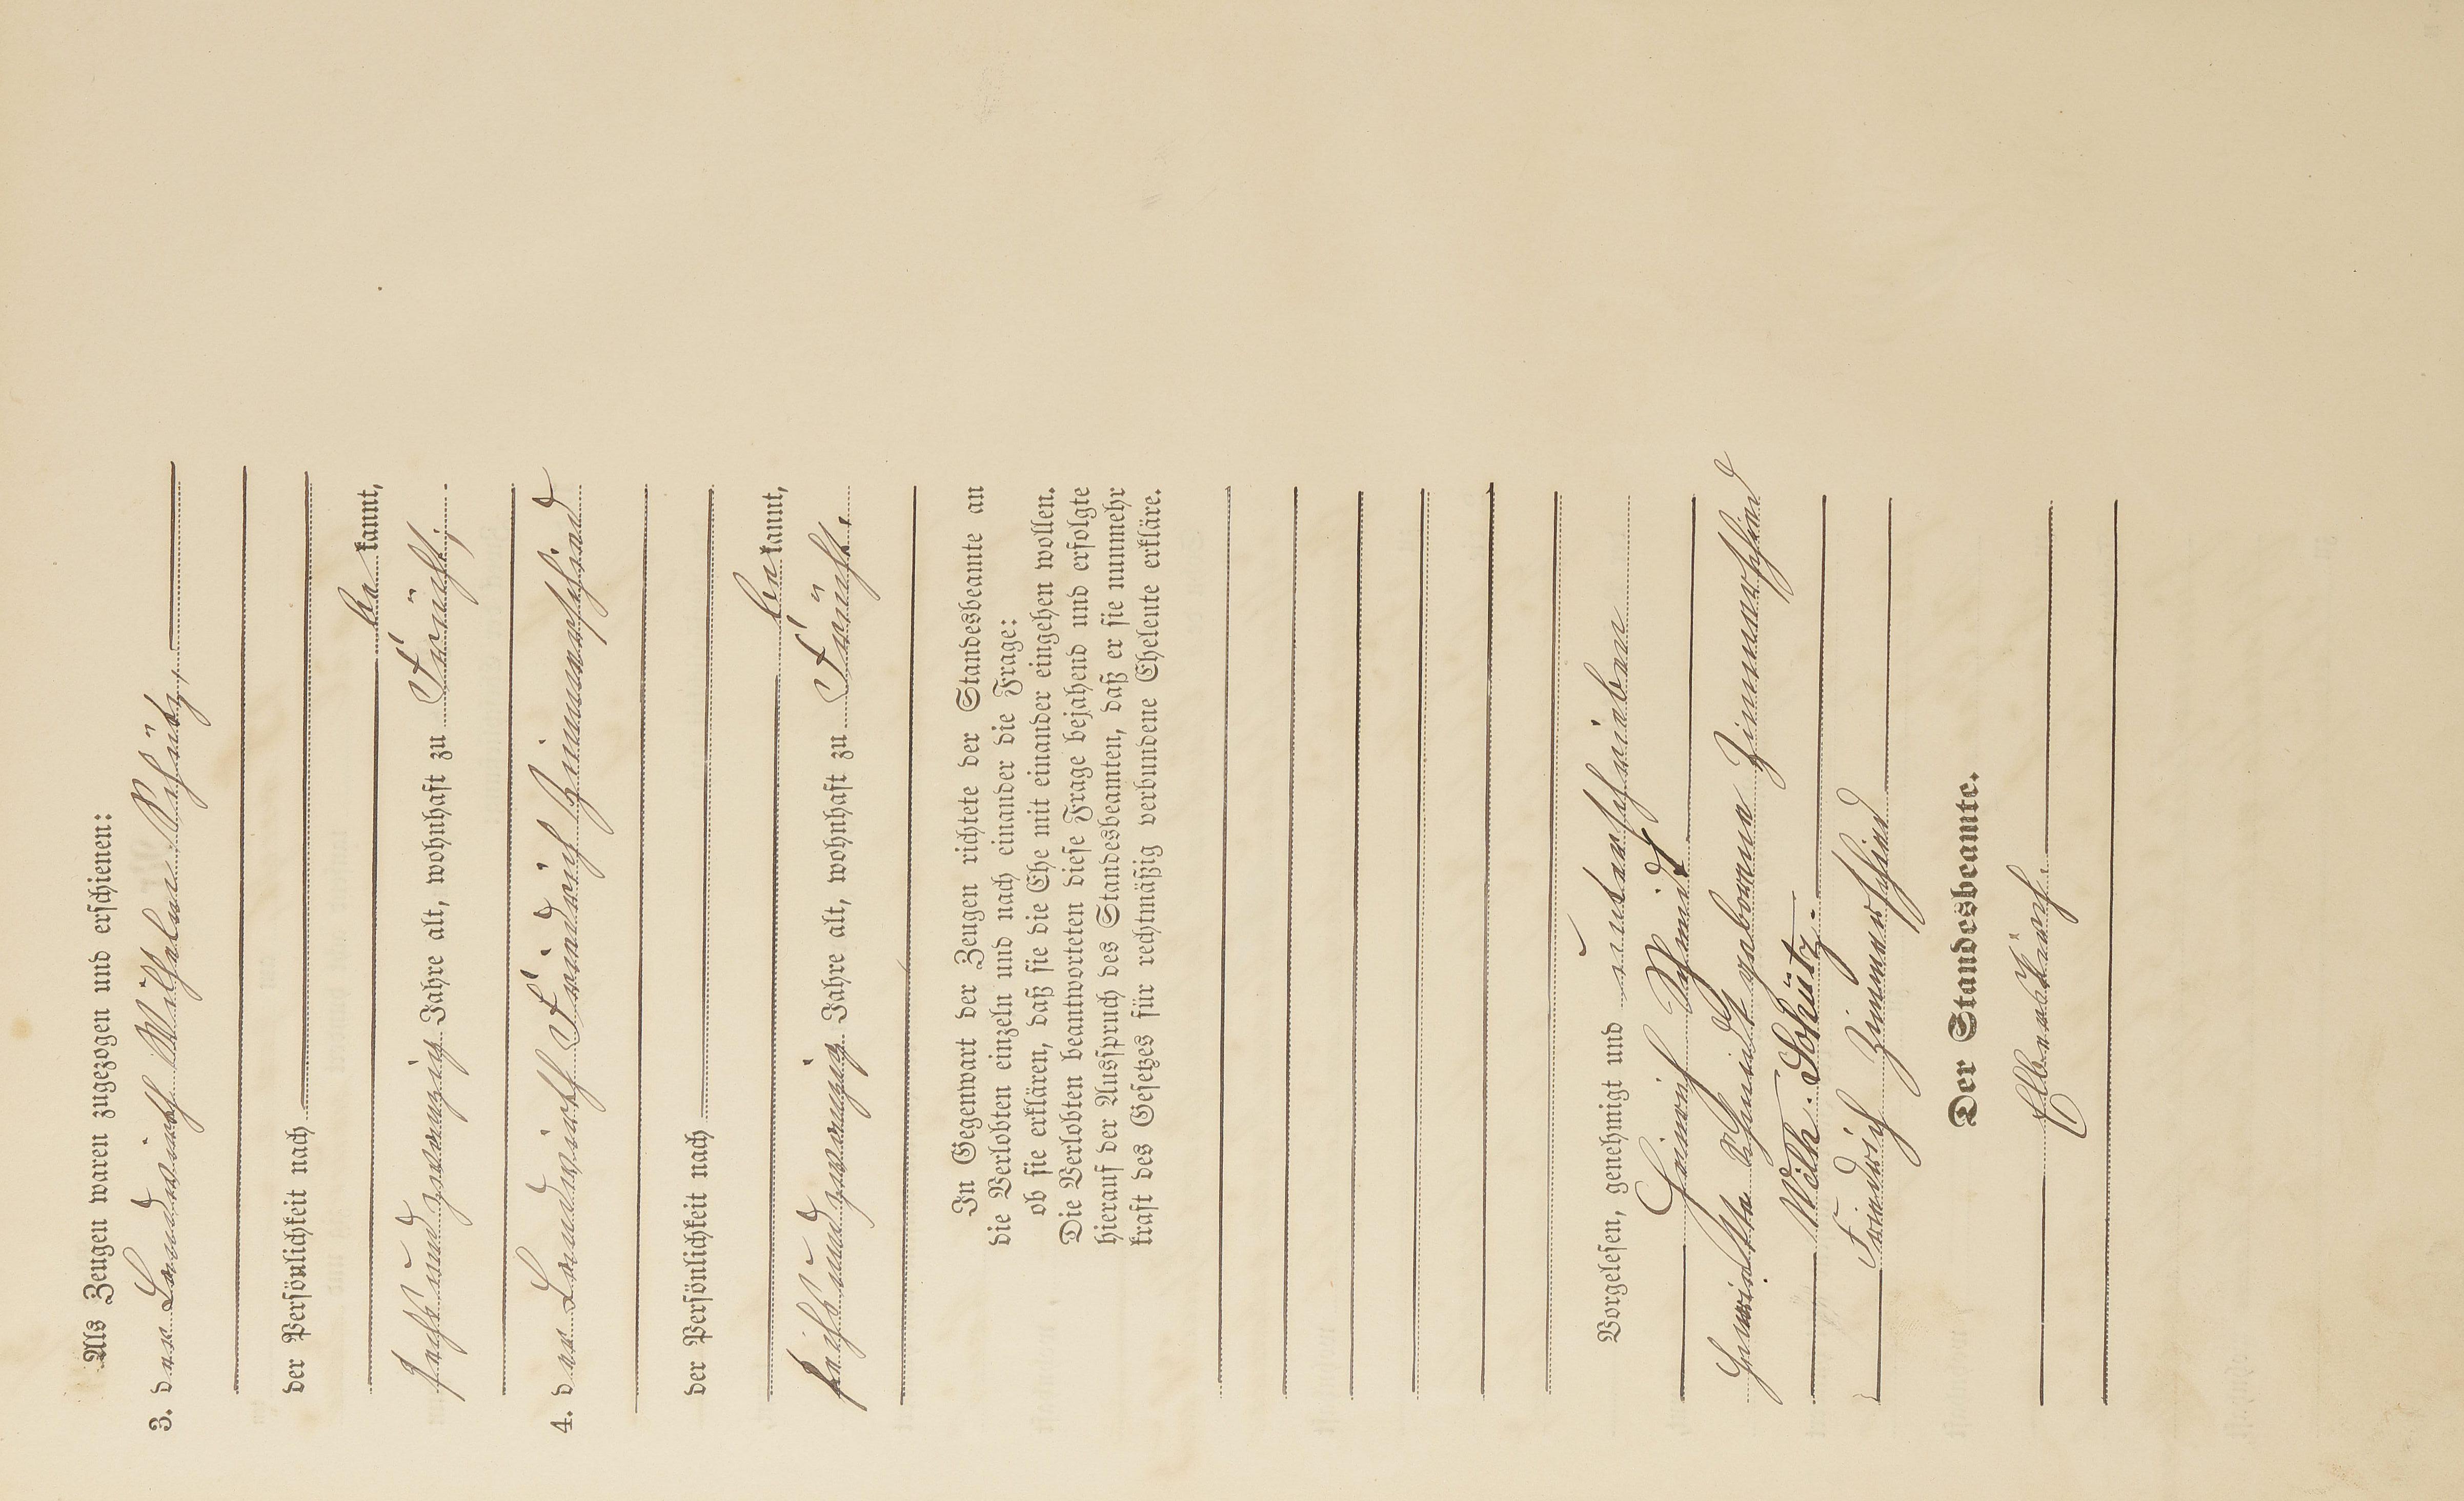 Als Zeugen waren zugezogen und erschienen:
3. der Landwirth Wilhelm Schütz,
der Persönlichkeit nach
bekannt,
sechs und zwanzig Jahre alt, wohnhaft zu Frücht,
4. der Landwirth Friedrich Zimmerschied
der Persönlichkeit nach
bekannt,
sechs und zwanzig Jahre alt, wohnhaft zu Frücht.
In Gegenwart der Zeugen richtete der Standesbeamte an
die Verlobten einzeln und nach einander die Frage:
ob sie erklären, daß sie die Ehe mit einander eingehen wollen.
Die Verlobten beantworteten diese Frage bejahend und erfolgte
hierauf der Ausspruch des Standesbeamten, daß er sie nunmehr
kraft des Gesetzes für rechtmäßig verbundene Eheleute erkläre.
Vorgelesen, genehmigt und unterschrieben
Heinrich Schmidt
Henriette Schmidt geborene Zimmerschied
Wilh. Schütz.
Friedrich Zimmerschied
Der Standesbeamte.